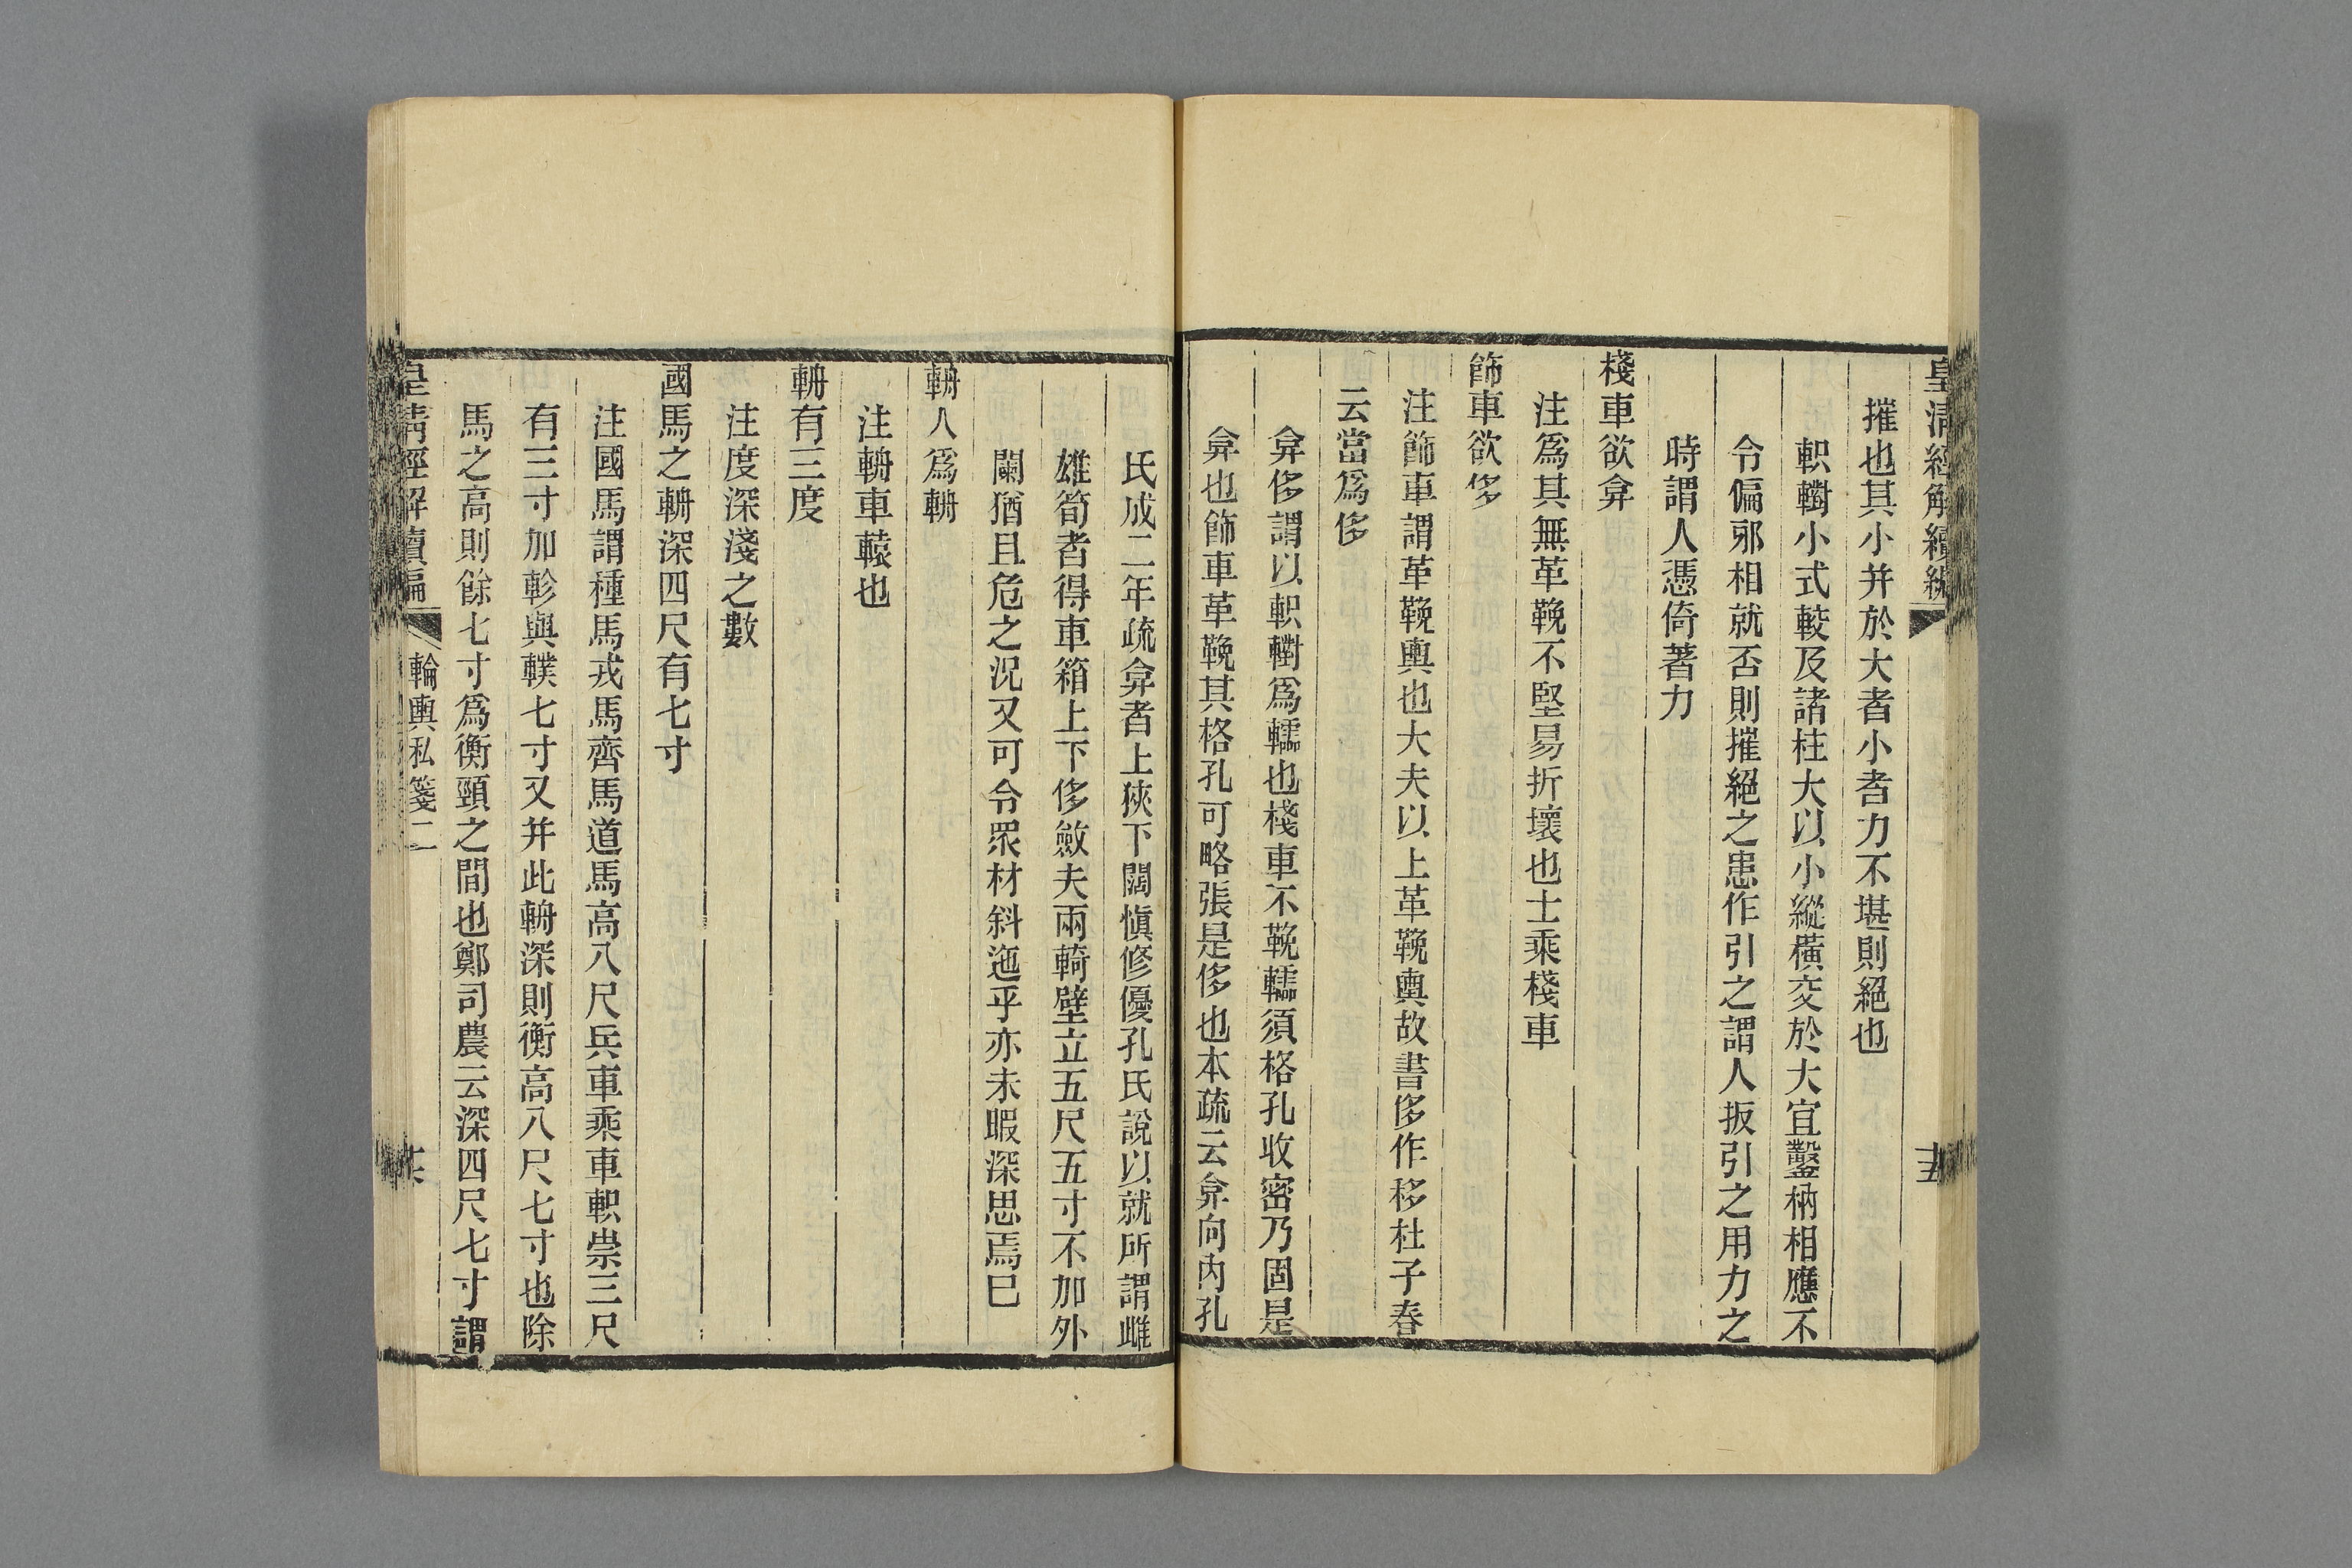 皇清經解續編
十五
摧也其小并於大者小者力不堪則絕也
軹轛小式較及諸柱大以小縱橫交於大宜鑿枘相應不
令偏邪相就否則摧絕之患作引之謂人扳引之用力之
時謂人憑倚著力
棧車欲弇
注爲其無革鞔不堅易折壞也士乘棧車
飾車欲侈
注飾車謂革鞔輿也大夫以上革鞔輿故書侈作移杜子春
云當爲侈
弇侈謂以軹轛爲轜也棧車不鞔轜須格孔收密乃固是
弇也飾車革鞔其格孔可略張是侈也本疏云弇向內孔
氏成二年疏弇者上狹下闊愼修優孔氏說以就所謂雌
雄筍者得車箱上下侈斂夫兩輢壁立五尺五寸不加外
闌猶且危之況又可令衆材斜迤乎亦未暇深思焉巳
輈人爲輈
注輈車轅也
輈有三度
注度深淺之數
國馬之輈深四尺有七寸
注國馬謂種馬戎馬齊馬道馬高八尺兵車乘車軹崇三尺
有三寸加軫與轐七寸又并此輈深則衡高八尺七寸也除
馬之高則餘七寸爲衡頸之間也鄭司農云深四尺七寸謂
皇清經解續編
輪輿私箋二